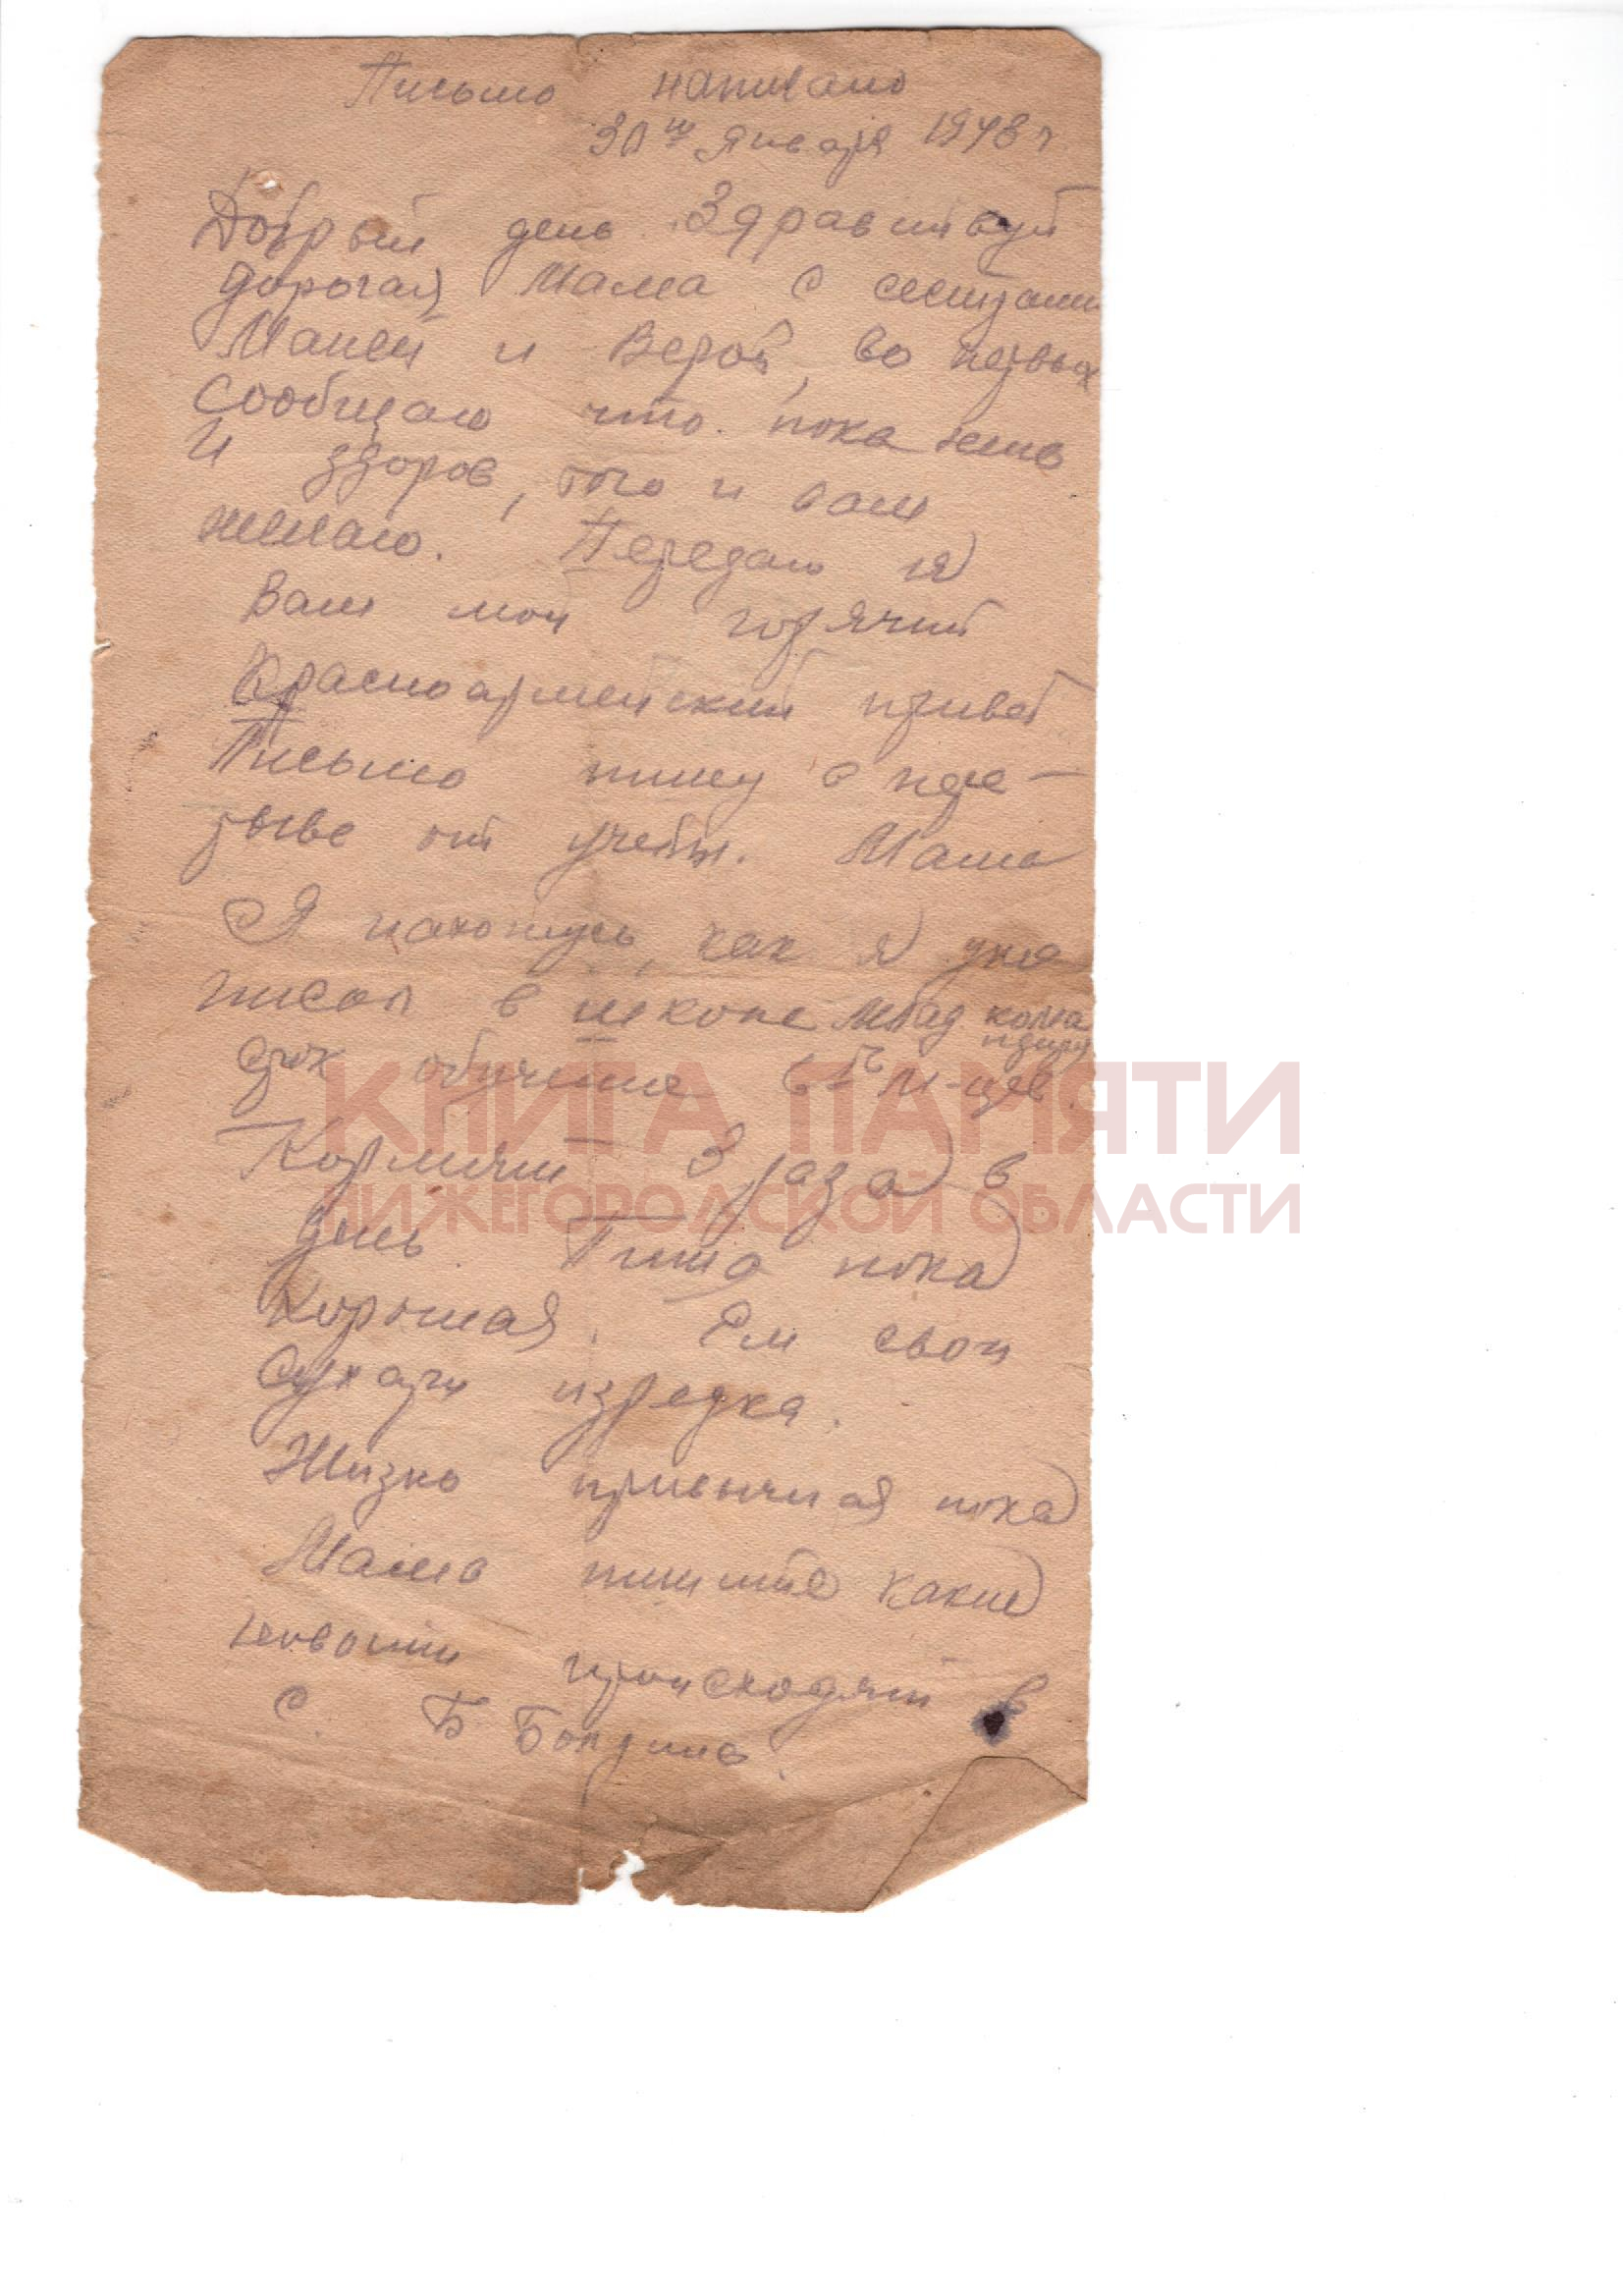 Письмо написано
30го января 1943 г
Добрый день. Здравствуй
дорогая Мама с сестрами
Маней и Верой, во первых
сообщаю что пока жив
и здоров, того и вам
желаю. Передаю я
Вам мой горячий
Красноармейский привет
Письмо пишу в пере-
рыве от учебы. Мама
Я нахожусь, как я уже
писал в школе млад кома
ндиров
Срок обучения 6 м-цев.
КНИГА ПАМЯТИ
Кормят 3 раза в
НИЖЕГОРОДСКОЙ ОБЛАСТИ
день Пища пока
хорошая. Ем свои
сухари изредка.
Жизнь привычная пока
Мама пишите какие
новости происходят в
с. Б Болдино.